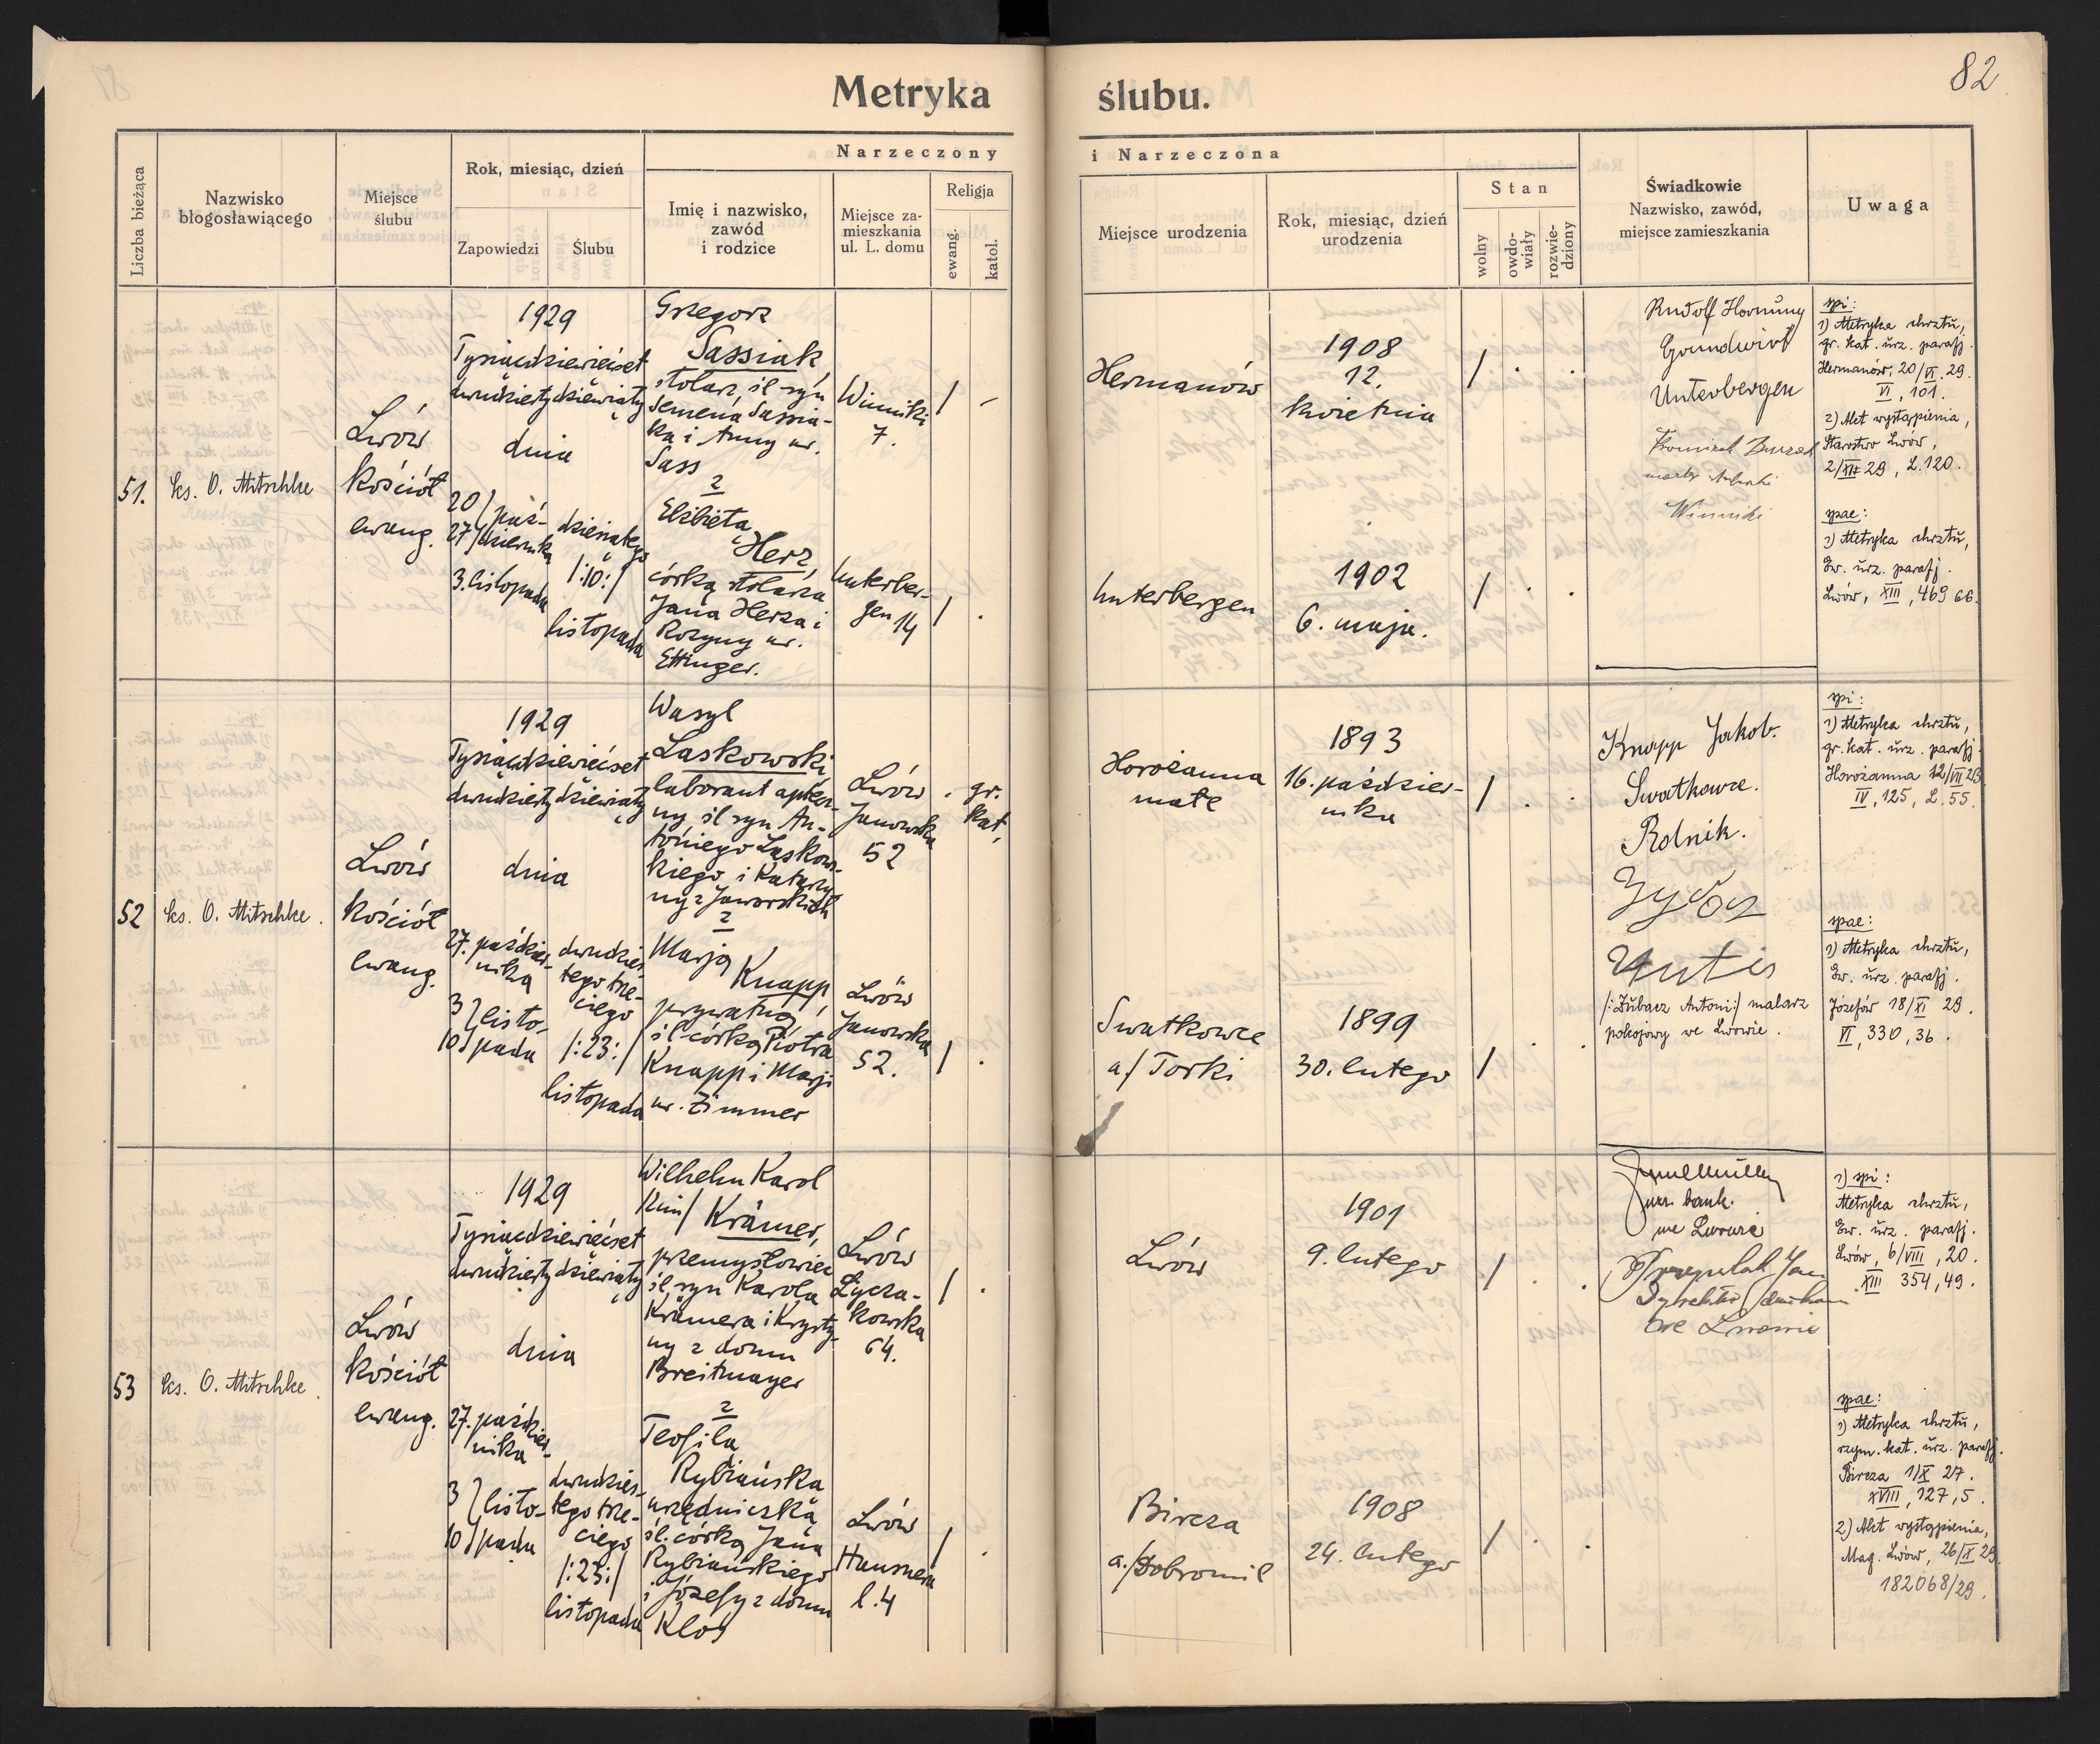 82
Metryka ślubu.
Liczba bieżąca
Nazwisko
błogosławiącego
Miejsce
ślubu
Rok, miesiąc, dzień
Zapowiedzi
Ślubu
Narzeczony
Imię i nazwisko,
zawód
i rodzice
Miejsce za-
mieszkania
ul. L. domu
Religja
ewang.
katol.
i Narzeczona
Miejsce urodzenia
Rok, miesiąc, dzień
urodzenia
Stan
wolny
owdo-
wiały
rozwie-
dziony
Świadkowie
Nazwisko, zawód,
miejsce zamieszkania
Uwaga
51.
ks. O. Mitschke
Lwów
kościół
ewang.
1929
Tysiącdziewięćset
dwudziesty dziewiąty
dnia
20/ paź-
27/ dziernika
3. listopada
dziesiątego
/:10:/
listopada
Grzegorz
Sassiak,
stolarz, śl. syn
Semena Sassia-
ka i Anny ur.
Sass
z
Elżbietą
Herz,
córką stolarza
Jana Herza i
Rozyny ur.
Ettinger.
Winniki
7.
/
-
Unterber-
gen 14
/
.
Hermanów
1908
12.
kwietnia
/
.
.
Unterbergen
1902
6. maja.
/
.
.
Rudolf Hornung
Grundwirt
Unterbergen
Winniki
spi:
1) Metryka chrztu,
gr. kat. urz. parafj.
Hermanów, 20/VI. 29.
VI, 101.
2) Akt wystąpienia,
Starostwo Lwów,
2/XII 29, L. 120.
spae:
1) Metryka chrztu,
Ew. urz. parafj.
Lwów, XIII, 469 66.
52
ks. O. Mitschke.
Lwów
kościół
ewang.
1929
Tysiącdziewięćset
dwudziesty dziewiąty
dnia
27. paździer-
nika
3 } listo-
10 } pada
dwudzies-
tego trze-
ciego
/:23:/
listopada
Wasyl
Laskowski
laborant aptecz-
ny śl. syn An-
toniego Laskow-
kiego i Katarzy-
ny z Jaworskich
z
Marją
Knapp,
prywatną,
śl. córką Piotra
Knapp i Marji
ur. Zimmer
Lwów
Janowska
52
.
gr.
kat.
Lwów
Janowska
52.
/
.
Horożanna
małe
1893
16. paździer-
nika
/
.
.
Swatkowce
a/ Torki
1899
30. lutego
/
.
.
Knapp Jakob.
Swatkowce.
Rolnik.
/:Zubacz Antoni:/ malarz
pokojowy we Lwowie.
spi:
1) Metryka chrztu,
gr. kat. urz. parafj.
Horożanna 12/VII 28
IV, 125, L. 55.
spae:
1) Metryka chrztu,
Ew. urz. parafj.
Józefów 18/XI 29.
VI, 330, 36.
53
ks. O. Mitschke.
Lwów
kościół
ewang.
1929
Tysiącdziewięćset
dwudziesty dziewiąty
dnia
27. paździer-
nika
3 } listo-
10 } pada
dwudzies-
tego trze-
ciego
/:23:/
listopada
Wilhelm Karol
/ Krämer,
przemysłowiec
śl. syn Karola
Krämera i Krysty-
ny z domu
Breitmayer
z
Teofilą
Rybiańską
urzędniczką
śl. córką Jana
Rybiańskiego
i Józefy z domu
Kloś
Lwów
Łycza-
kowska
64.
/
.
Lwów
Hausnera
l. 4
/
.
Lwów
1901
9. lutego
/
.
.
Bircza
a./Dobromil
1908
24. lutego
/
.
.
urz. bank.
we Lwowie
we Lwowie
1) spi:
Metryka chrztu,
Ew. urz. parafj.
Lwów, 6/VIII, 20.
XIII 354, 49.
spae:
1) Metryka chrztu,
rzym. kat. urz. parafj.
Bircza 1/X 27.
XVIII, 127, 5.
2.) Akt wystąpienia,
Mag. Lwów, 26/X 29.
182068/29.